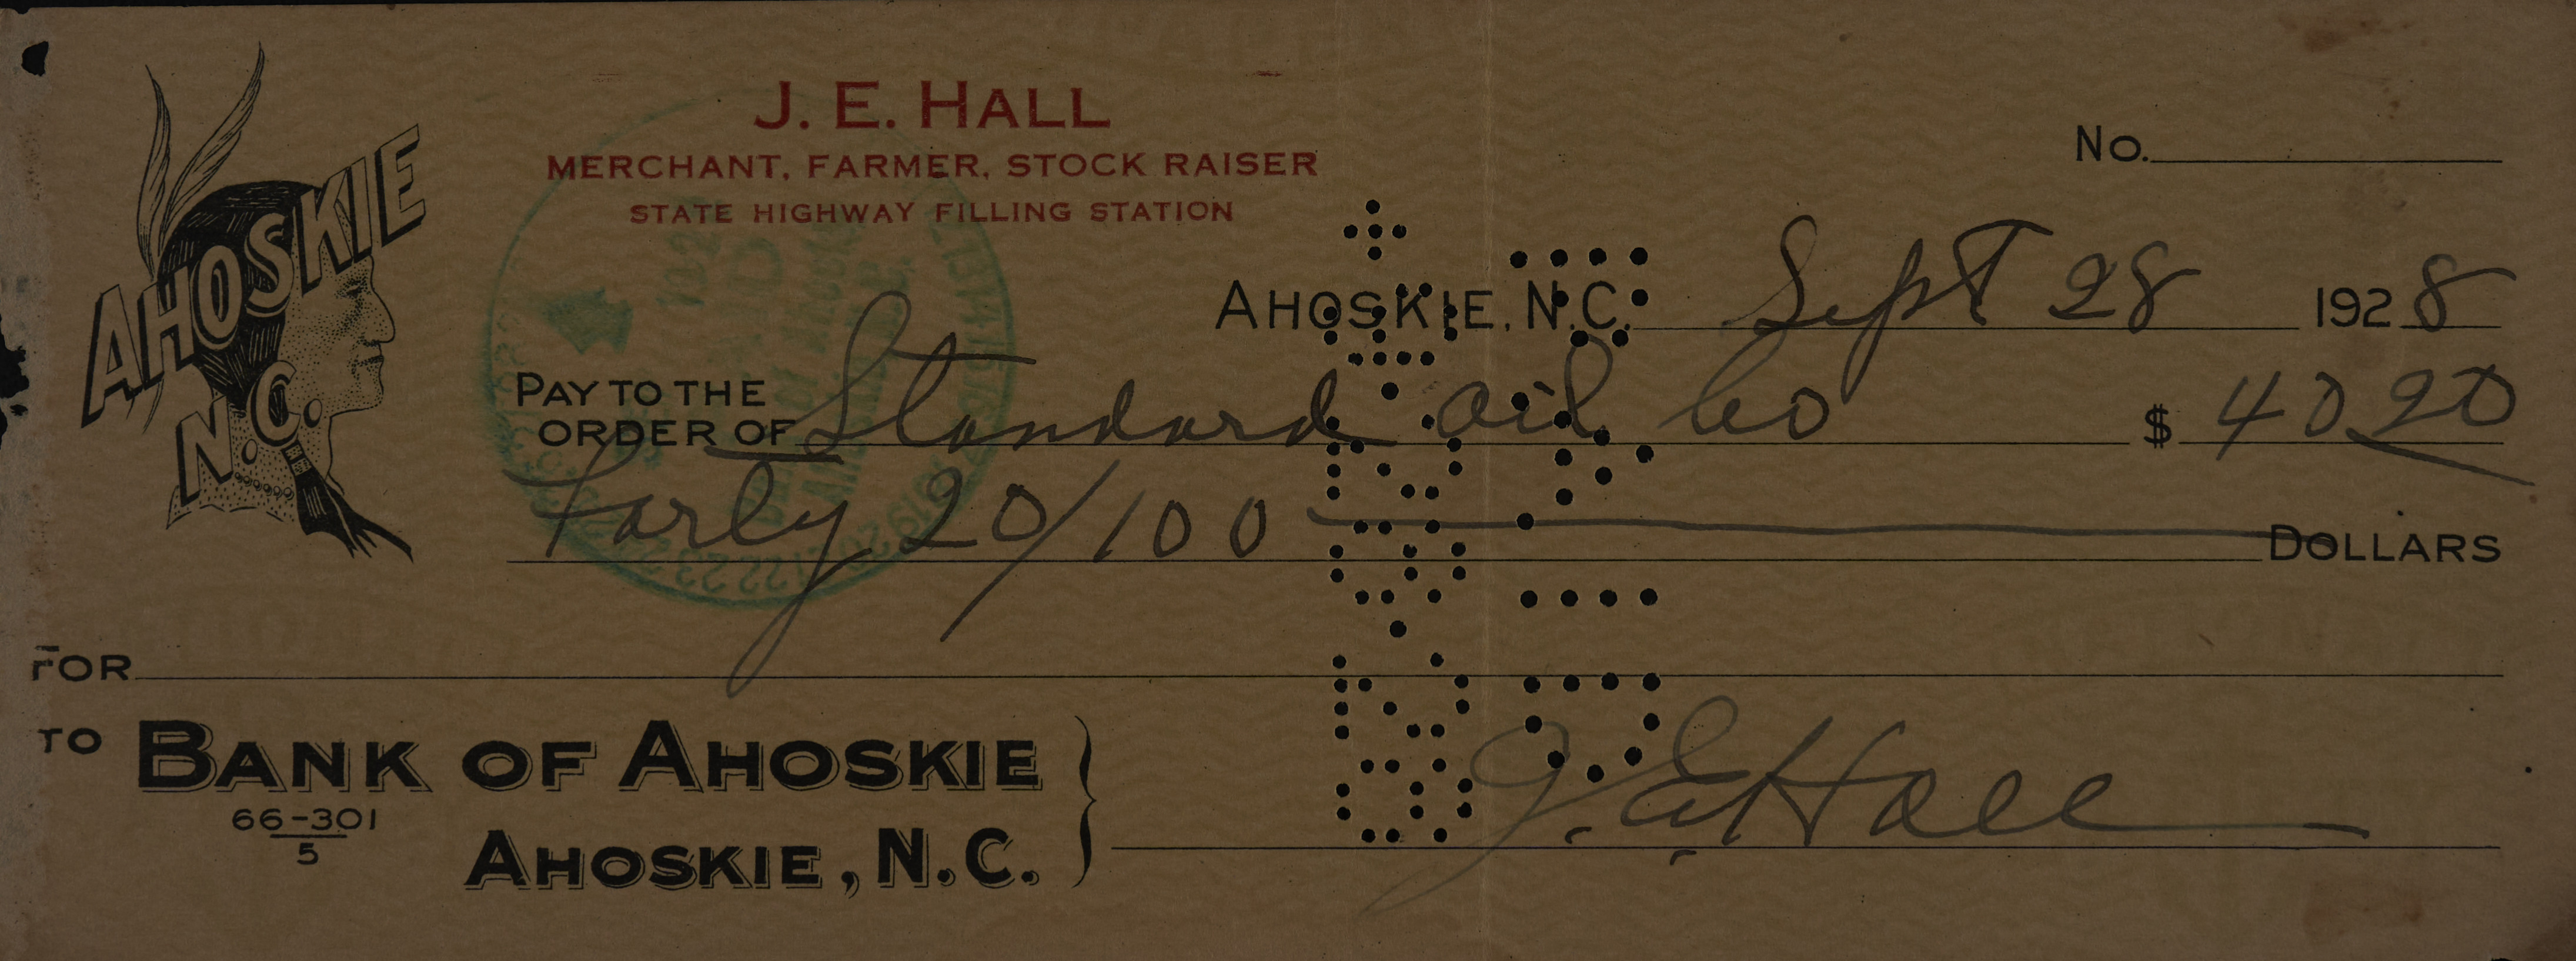 J. E. HALL
MERCHANT, FARMER, STOCK RAISER
STATE HIGHWAY FILLING STATION
AHOSKIE
N.C.
No.
AHOSKIE, N.C. Sept 28 1928
PAY TO THE
ORDER OF Standard Oil Co $ 40 20
Forty 20/100 DOLLARS
FOR
TO BANK OF AHOSKIE
66-301
5
AHOSKIE, N.C.
J. E. Hall